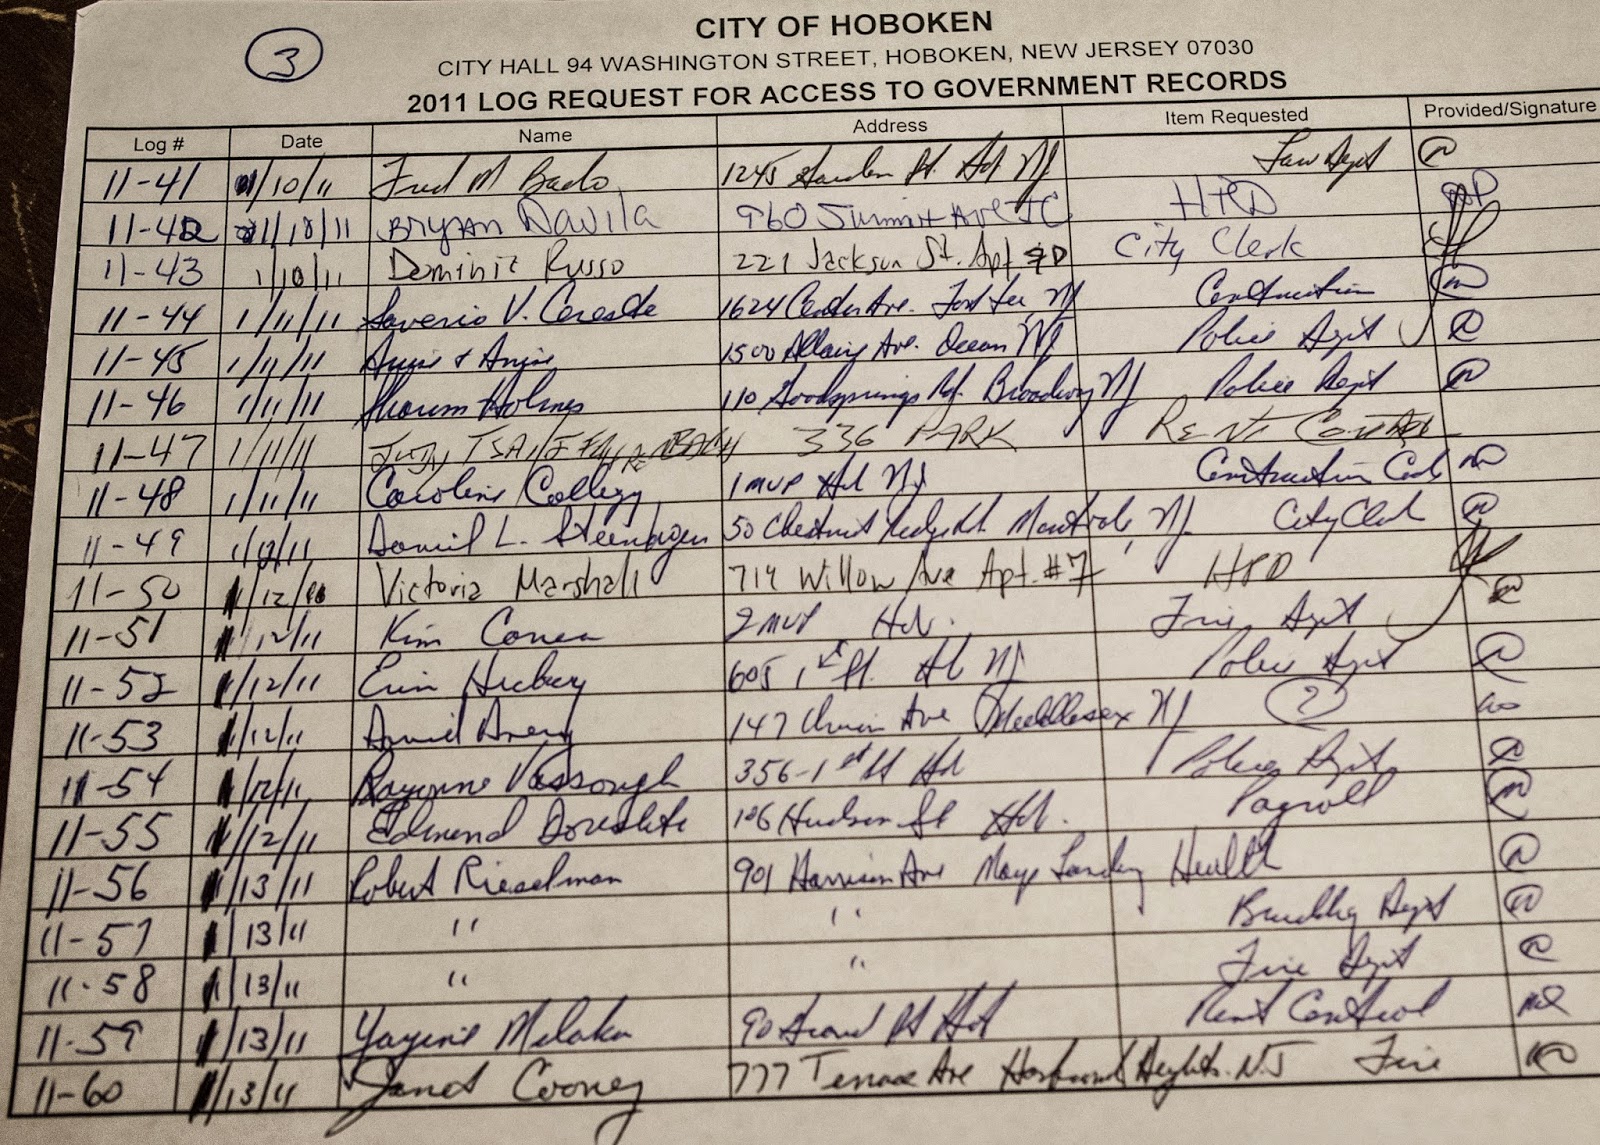 3
CITY OF HOBOKEN
CITY HALL 94 WASHINGTON STREET, HOBOKEN, NEW JERSEY 07030
2011 LOG REQUEST FOR ACCESS TO GOVERNMENT RECORDS
Log # Date Name Address Item Requested Provided/Signature
11-41 1/10/11 Fred M 1245 Garden St. Hob NJ Law Dept
11-42 1/10/11 Bryan Davila 960 Summit Ave JC HPD
11-43 1/10/11 Dominic Russo 221 Jackson St. Apt City Clerk
11-44 1/11/11 Saverio V. Cereste 1624 Center Ave. Fort Lee, NJ Construction
11-45 1/11/11 1500 Allaire Ave. Ocean NJ Police Dept
11-46 1/11/11 Holmes 110 Goodsprings Rd. Broadway NJ Police Dept
11-47 1/11/11 336 PARK RENT CONTROL
11-48 1/11/11 Caroline 1 MVP Hob NJ Construction Code
11-49 1/12/11 Daniel L. Steenhagen 50 Chestnut Ridge Rd. Montvale, NJ City Clerk
11-50 1/12/11 Victoria Marshall 719 Willow Ave Apt. #7 HPD
11-51 1/12/11 Kim 2 MVP Hob. Fire Dept
11-52 1/12/11 Erin 605 1st St. Hob NJ Police Dept
11-53 1/12/11 Daniel 147 Union Ave Middlesex NJ ?
11-54 1/12/11 Vossough 356-1st St Hob Police Dept
11-55 1/12/11 Edmend 106 Hudson St Hob. Payroll
11-56 1/13/11 Robert Rieselman 901 Harrison Ave Mays Landing Health
11-57 1/13/11 " " Building Dept
11-58 1/13/11 " " Fire Dept
11-59 1/13/11 90 Grand St Hob Rent Control
11-60 1/13/11 Janet Cooney 777 Terrace Ave Hasbrouck Heights. NJ Fire